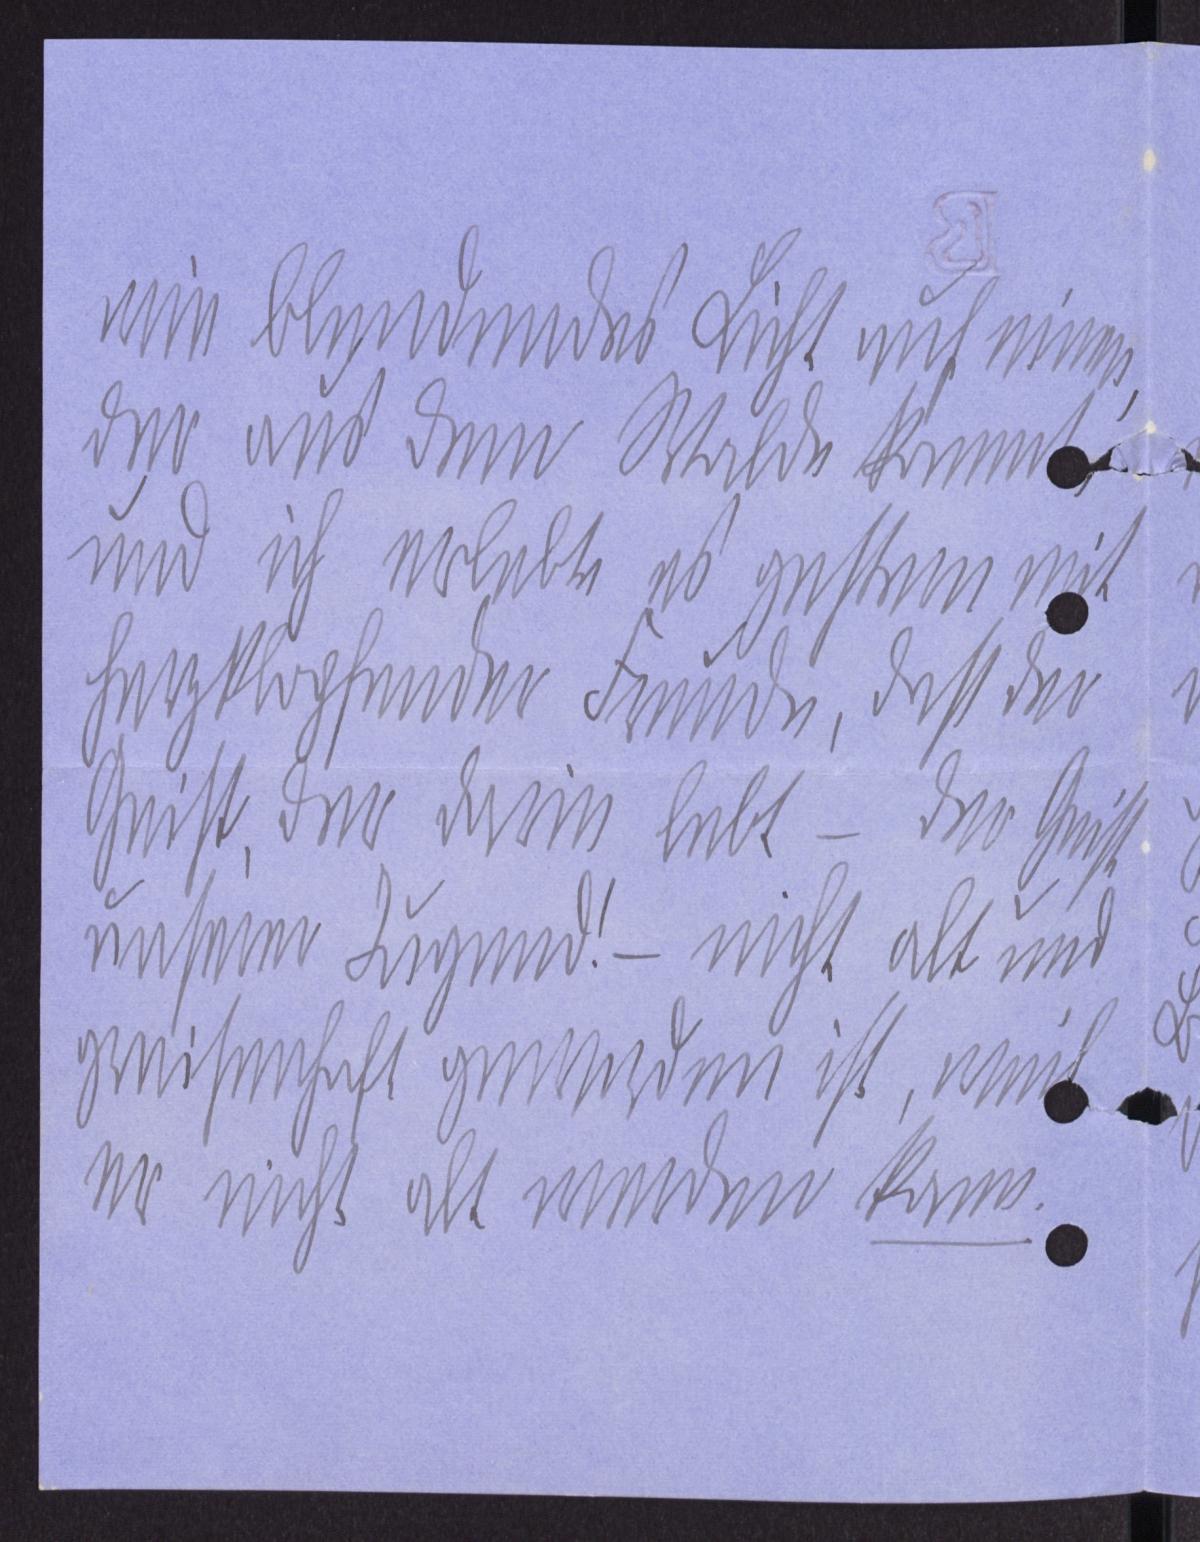 wie blendendes Licht auf einen,
der aus dem Walde kommt,
und ich erlebte es gestern mit
herzklopfender Freude, dass der
Geist, der darin lebt – der Geist
unserer Jugend! – nicht alt und
greisenhaft geworden ist, weil
er nicht alt werden kann.